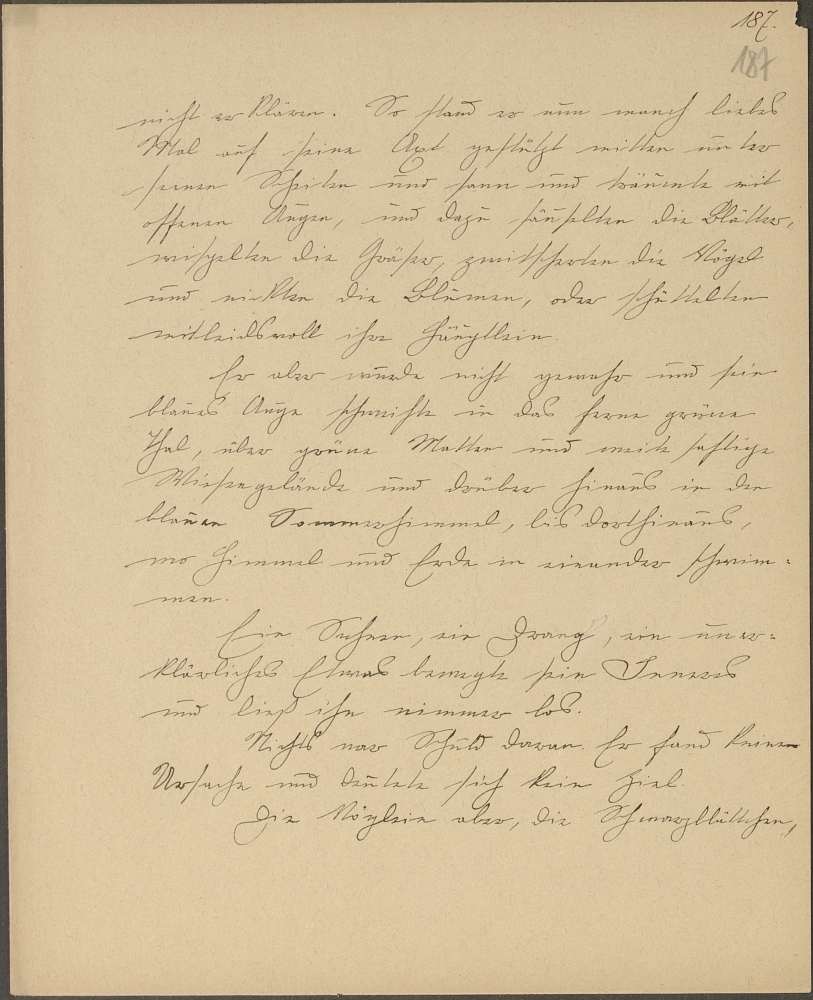 187.
187
nicht erklären. So stand er nun manch liebes
Mal auf seine Axt gestützt mitten unter
seinen Scheiten und sann und träumte mit
offenen Augen, und dazu säuselten die Blätter,
wispelten die Gräser, zwitscherten die Vögel
und nickten die Blumen, oder schüttelten
mitleidsvoll ihre Häuptlein.
Er aber wurde nicht gewahr und sein
blaues Auge schweifte in das ferne grüne
Thal, über grüne Matten und weite saftige
Wiesengelände und drüber hinaus in den
blauen Sommerhimmel, bis dorthinaus,
wo Himmel und Erde in einander schwim-
men.
Ein Sehnen, ein Drang, ein uner-
klärliches Etwas bewegte sein Inneres
und ließ ihn nimmer los.
Nichts war Schuld daran. Er fand keinen
Ursache und deutete sich kein Ziel.
Die Vöglein aber, die Schwarzblättchen,